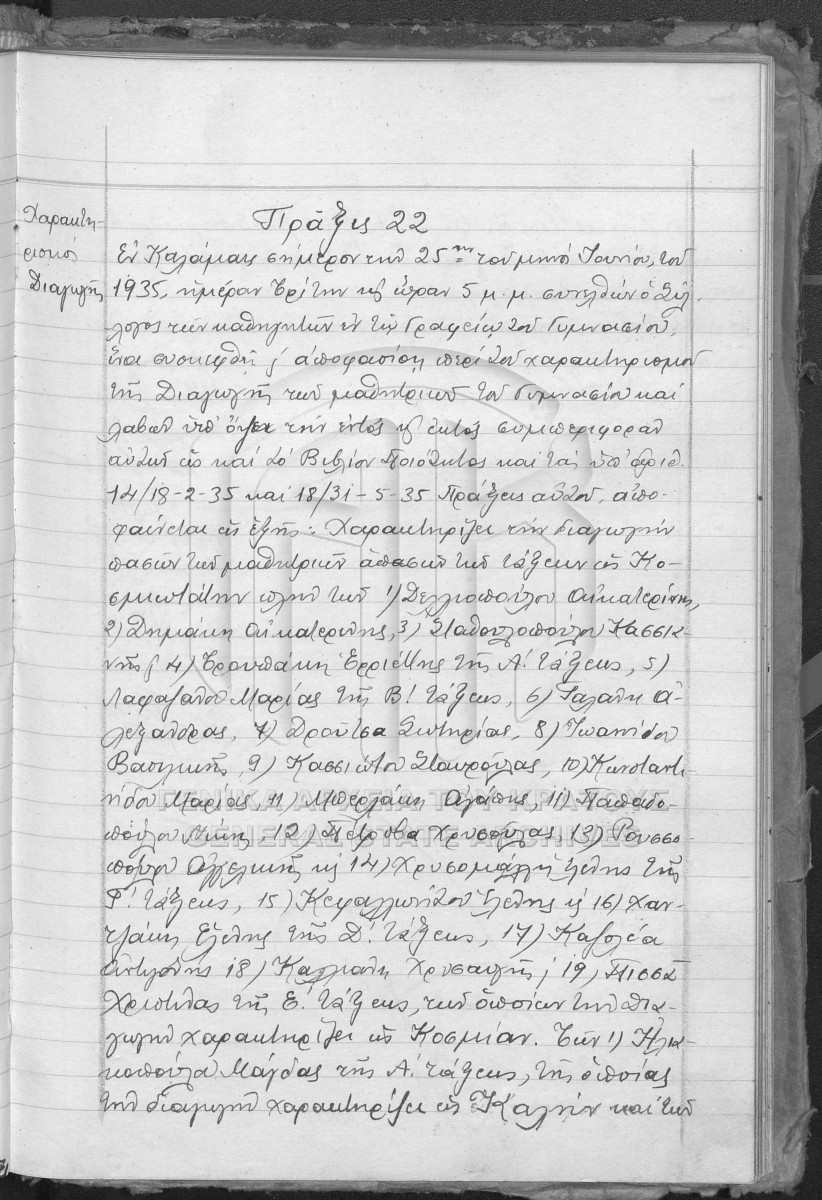 Πρᾶξις 22
Χαρακτη-
ρισμός
Διαγωγῆς
Ἐν Καλάμαις σήμερον τὴν 25ην τοῦ μηνὸς Ἰουνίου, τοῦ
1935, ἡμέραν Τρίτην κ ὥραν 5 μ.μ. συνελθὼν ὁ Σύλ-
λογος τῶν καθηγητῶν ἐν τῷ Γραφείῳ τοῦ Γυμνασίου,
ἵνα συσκεφθῇ ἀποφασίσῃ περὶ τοῦ χαρακτηρισμοῦ
τῆς Διαγωγῆς τῶν μαθητριῶν τοῦ Γυμνασίου καὶ
λαβὼν ὑπ' ὄψει τὴν ἐντὸς κ ἐκτὸς συμπεριφορὰν
αὐτῶν ὡς καὶ τὸ Βιβλίον Ποιότητος καὶ τὰς ὑπ' ἀριθ.
14/18-2-35 καὶ 18/31-5-35 Πράξεις αὐτοῦ, ἀπο-
φαίνεται ὡς ἑξῆς: Χαρακτηρίζει τὴν διαγωγὴν
πασῶν τῶν μαθητριῶν ἁπασῶν τῶν τάξεων ὡς Κο-
σμιωτάτην πλὴν τῶν 1) Δελλιοπούλου Αἰκατερίνης,
2) Δημάκη Αἰκατερίνης, 3) Σταθουλοπούλου Κασσια-
νῆς 4) Τρουπάκη Ἑρριέττης τῆς Α! τάξεως, 5)
Λαφαζάνου Μαρίας τῆς Β! τάξεως, 6) Γαλάνη Ἀ-
λεξάνδρας, 7) Δρούτσα Σωτηρίας, 8) Ἰωαννίδου
Βασιλικῆς, 9) Κασσιώτου Σταυρούλας, 10) Κωνσταντι-
νίδου Μαρίας, 11) Μπερλάκη Ἀγάπης, 11) Παπαδο-
πούλου Νίκης, 12) Πέτροβα Χρυσούλας, 13) Ρουσσο-
πούλου Ἀγγελικῆς κ 14) Χρυσομάλλη Ἑλένης τῆς
Γ! τάξεως, 15) Κεφαλλωνίτου Ἑλένης κ 16) Χαν-
τζάκη Ἑλένης τῆς Δ! τάξεως, 17) Καζολέα
Ἀντιγόνης 18) Καλμάνη Χρυσαυγῆς 19) Πισσᾶ
Χριστίνας τῆς Ε! τάξεως, τῶν ὁποίων τὴν Δια-
γωγὴν χαρακτηρίζει ὡς Κοσμίαν. Τῶν 1) Ἠλια-
κοπούλα Μάγδας τῆς Α! τάξεως, τῆς ὁποίας
τὴν διαγωγὴν χαρακτηρίζει ὡς Καλὴν καὶ τῶν
ΓΕΝΙΚΑ ΑΡΧΕΙΑ ΤΟΥ ΚΡΑΤΟΥΣ
GENERAL STATE ARCHIVES